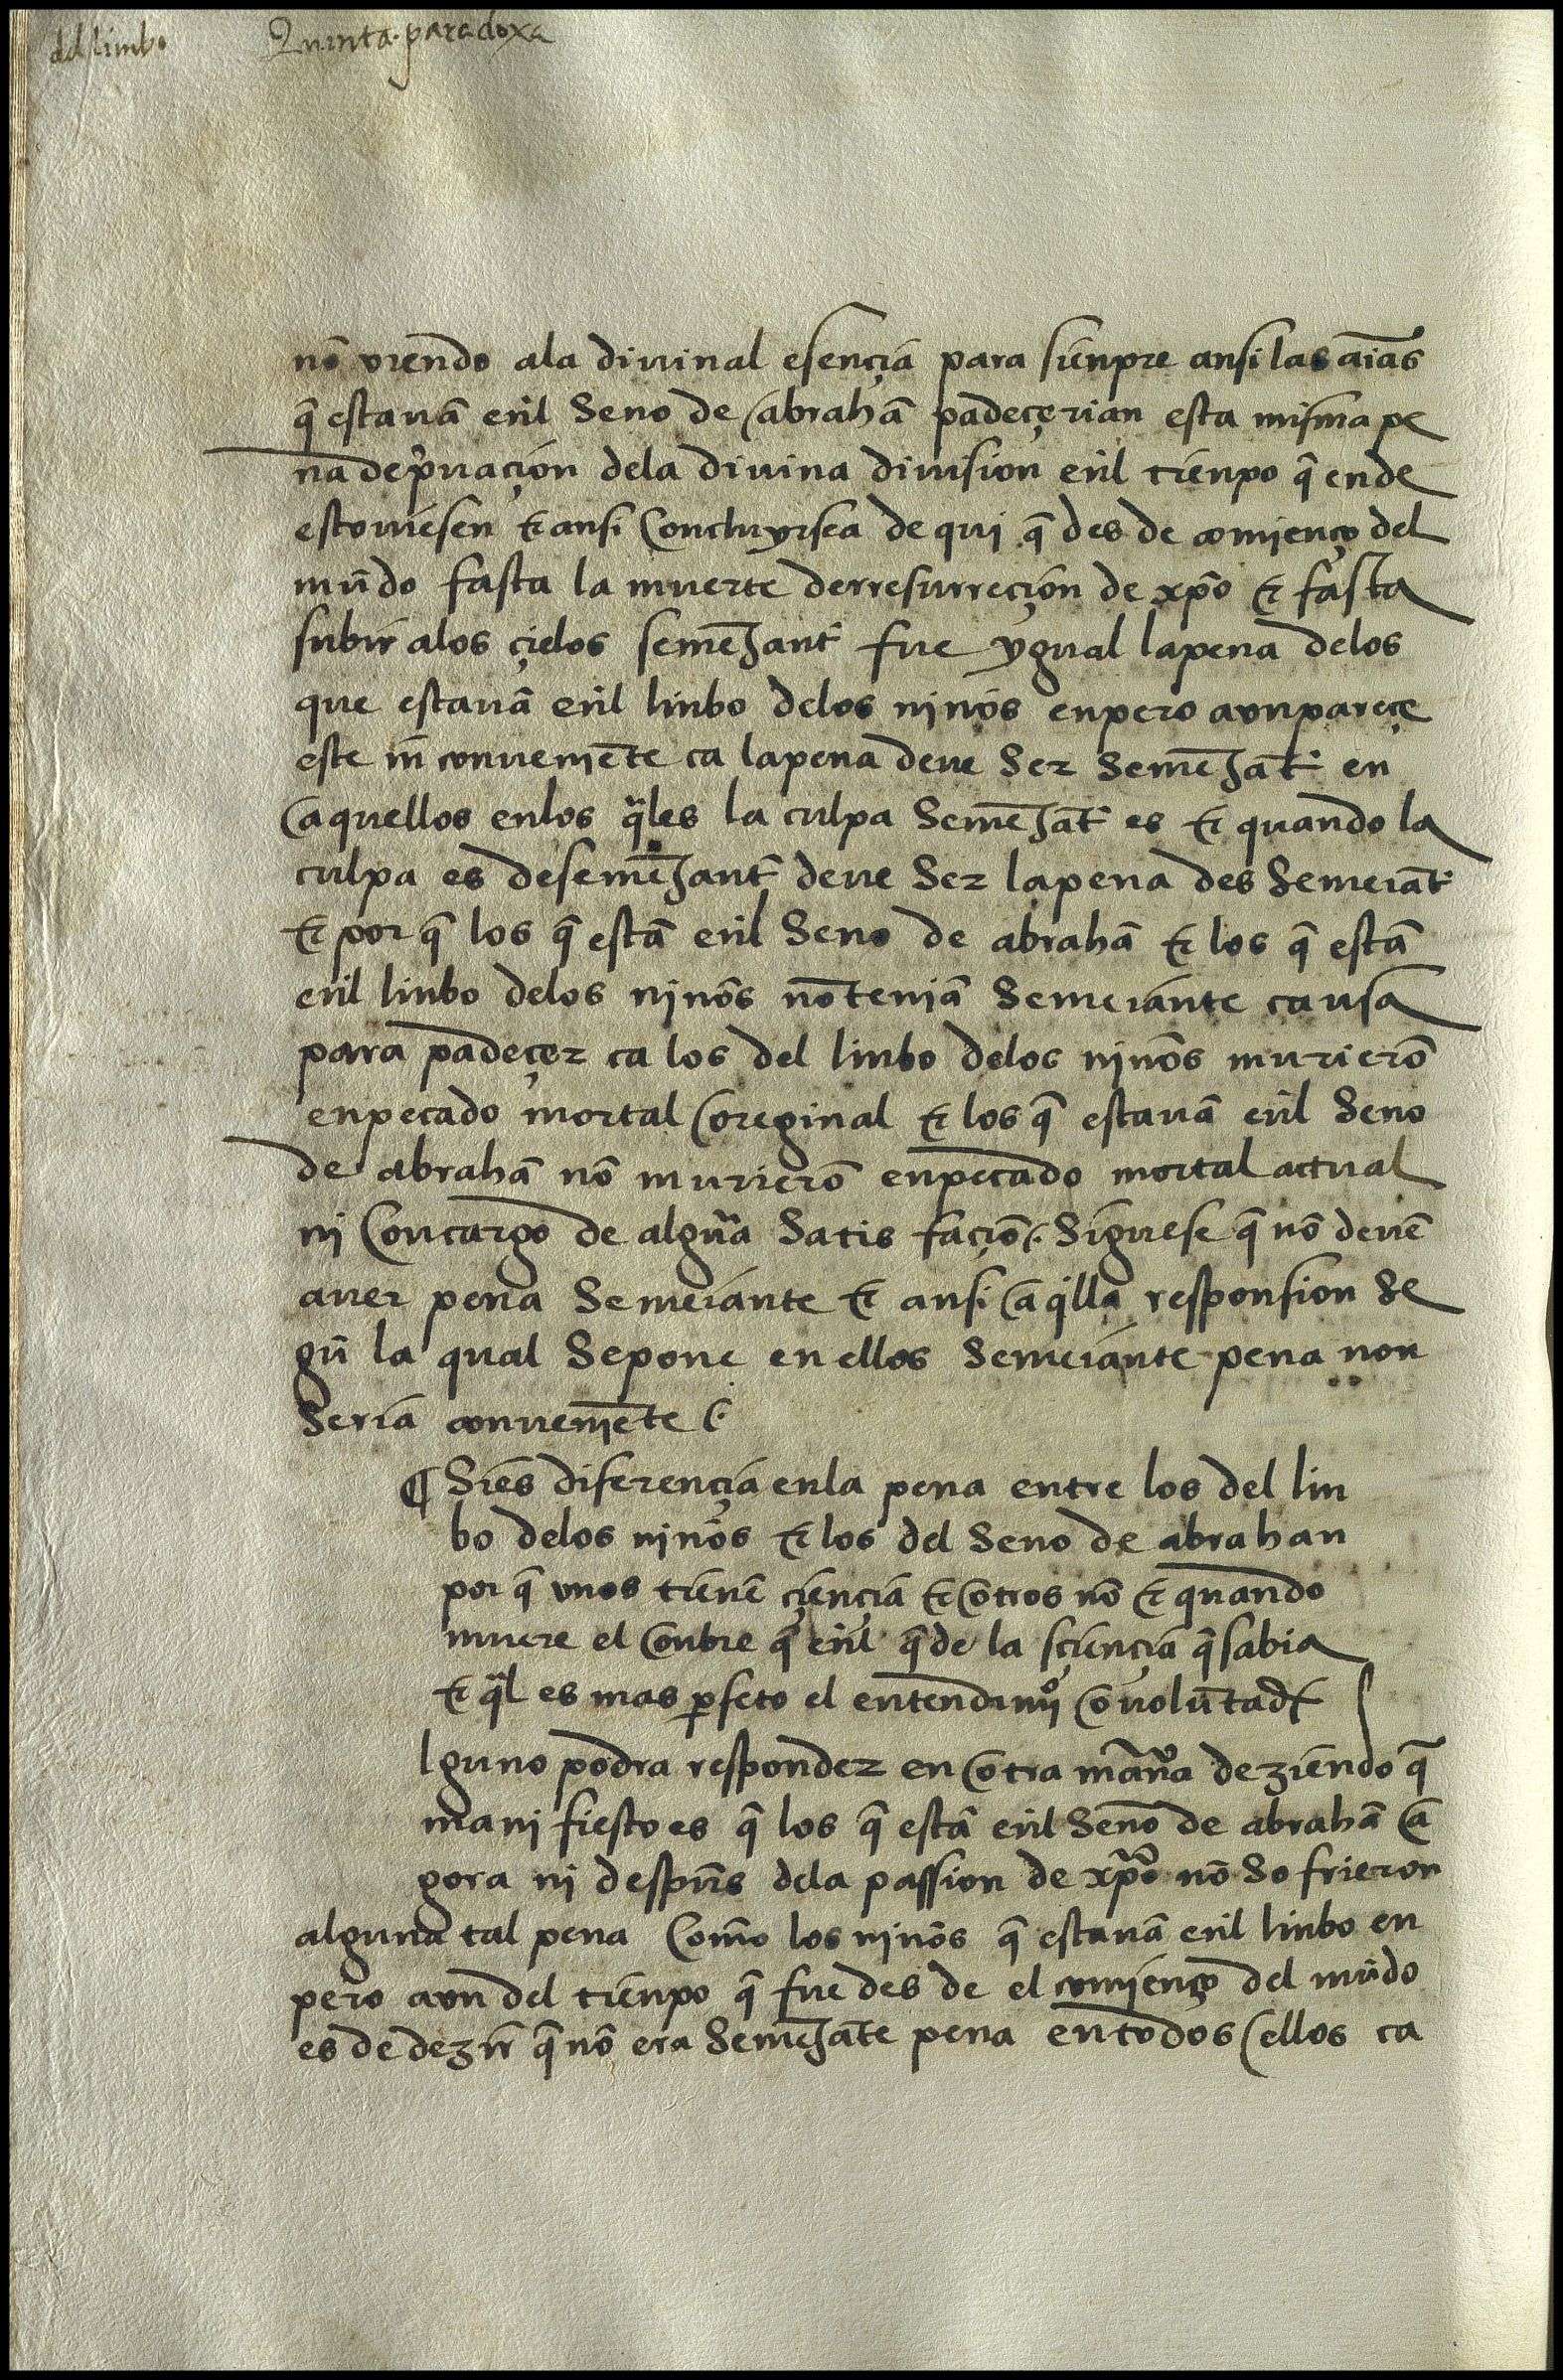 del limbo Quinta paradoxa
nō viendo ala divinal esençia para sienpre ansi las aīas
q̄ estauā enl̄ seno de abrahā padeçerian esta misma pe
na de p̄uaçion dela diuina diuision enl̄ tienpo q̄ ende
estouiesen & ansi concluyrsea de qui q̄ des de comienço del
mūdo fasta la muerte derresurreçion de xp̄o & fasta
subir alos çielos semeJant̄ fue ygual lapena delos
que estauā enl̄ linbo delos nin̄os enpero avnpareçe
este īn conueniēte ca lapena deue ser semēJāt̄ en
aquellos enlos q̄les la culpa semēJāt̄ es & quando la
culpa es desemēJant̄ deue ser lapena des semeiāt̄
& por q̄ los q̄ estā enl̄ seno de abrahā & los q̄ estā
enl̄ linbo delos nin̄os nōteniā semeiante causa
para padeçer ca los del linbo delos nin̄os murierō
enpecado mortal oreginal & los q̄ estauā enl̄ seno
de abrahā nō murierō enpecado mortal actual
ni concargo de algūa satis façiō siguese q̄ nō deuē
auer pena semeiante & ansi aq̄lla responsion se
gū la qual sepone en ellos semeiante pena non
seria conueniēte
¶ Sies diferençia enla pena entre los del lin
bo delos nin̄os & los del seno de abrahan
por q̄ vnos tienē çiençia & otros nō & quando
muere el onbre q̄ enl̄ q̄de la sçiençia q̄ sabia
& q̄l es mas p̄feto el entendimiº o volūtad
lguno podra responder en otra mān̄a deziendo q̄
mani fiesto es q̄ los q̄ estā enl̄ seno de abrahā a
gora ni despūs dela passion de xp̄o nō so frieron
alguna tal pena com̄o los nin̄os q̄ estauā enl̄ linbo en
pero avn del tienpo q̄ fue des de el comienço del mūdo
es de dezir q̄ nō era semeJāte pena entodos ellos ca